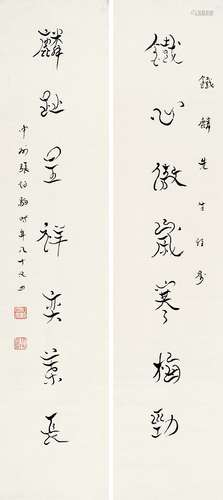 鐵心傲歲寒梅勁
鐵麟先生
麟趾呈祥奕葉長
中州張伯駒時年八十又四